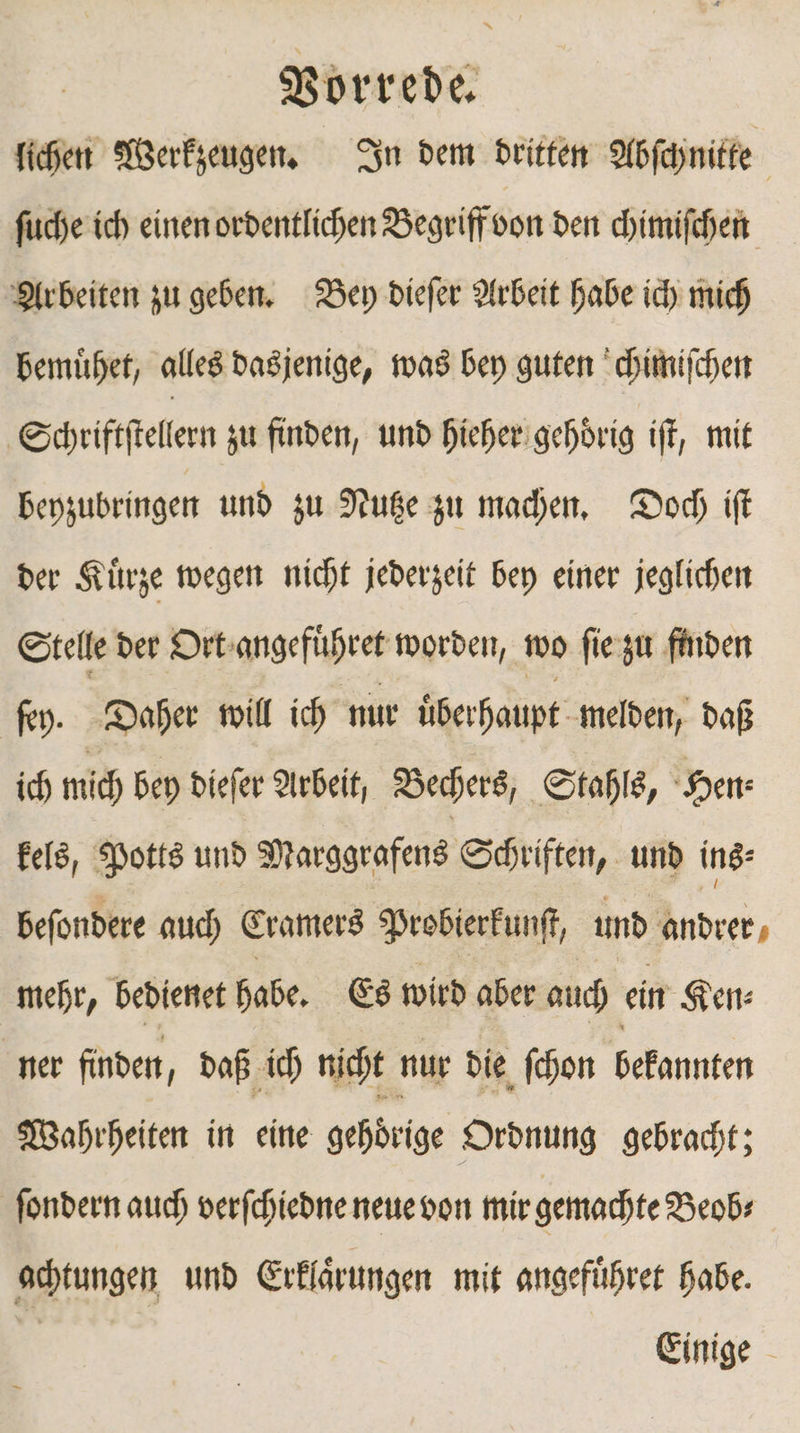 Vorrede.
lichen Werkzeugen. In dem dritten Abschnitte
suche ich einen ordentlichen Begriff von den chimischen
Arbeiten zu geben. Bey dieser Arbeit habe ich mich
bemühet, alles dasjenige, was bey guten chimischen
Schriftstellern zu finden, und hieher gehörig ist, mit
beyzubringen und zu Nutze zu machen. Doch ist
der Kürze wegen nicht jederzeit bey einer jeglichen
Stelle der Ort angeführet worden, wo sie zu finden
sey. Daher will ich nur überhaupt melden, daß
ich mich bey dieser Arbeit, Bechers, Stahls, Hen-
kels, Potts und Marggrafens Schriften, und ins-
besondere auch Cramers Probierkunst, und andrer
mehr, bedienet habe. Es wird aber auch ein Ken-
ner finden, daß ich nicht nur die schon bekannten
Wahrheiten in eine gehörige Ordnung gebracht;
sondern auch verschiedne neue von mir gemachte Beob-
achtungen und Erklärungen mit angeführet habe.
Einige